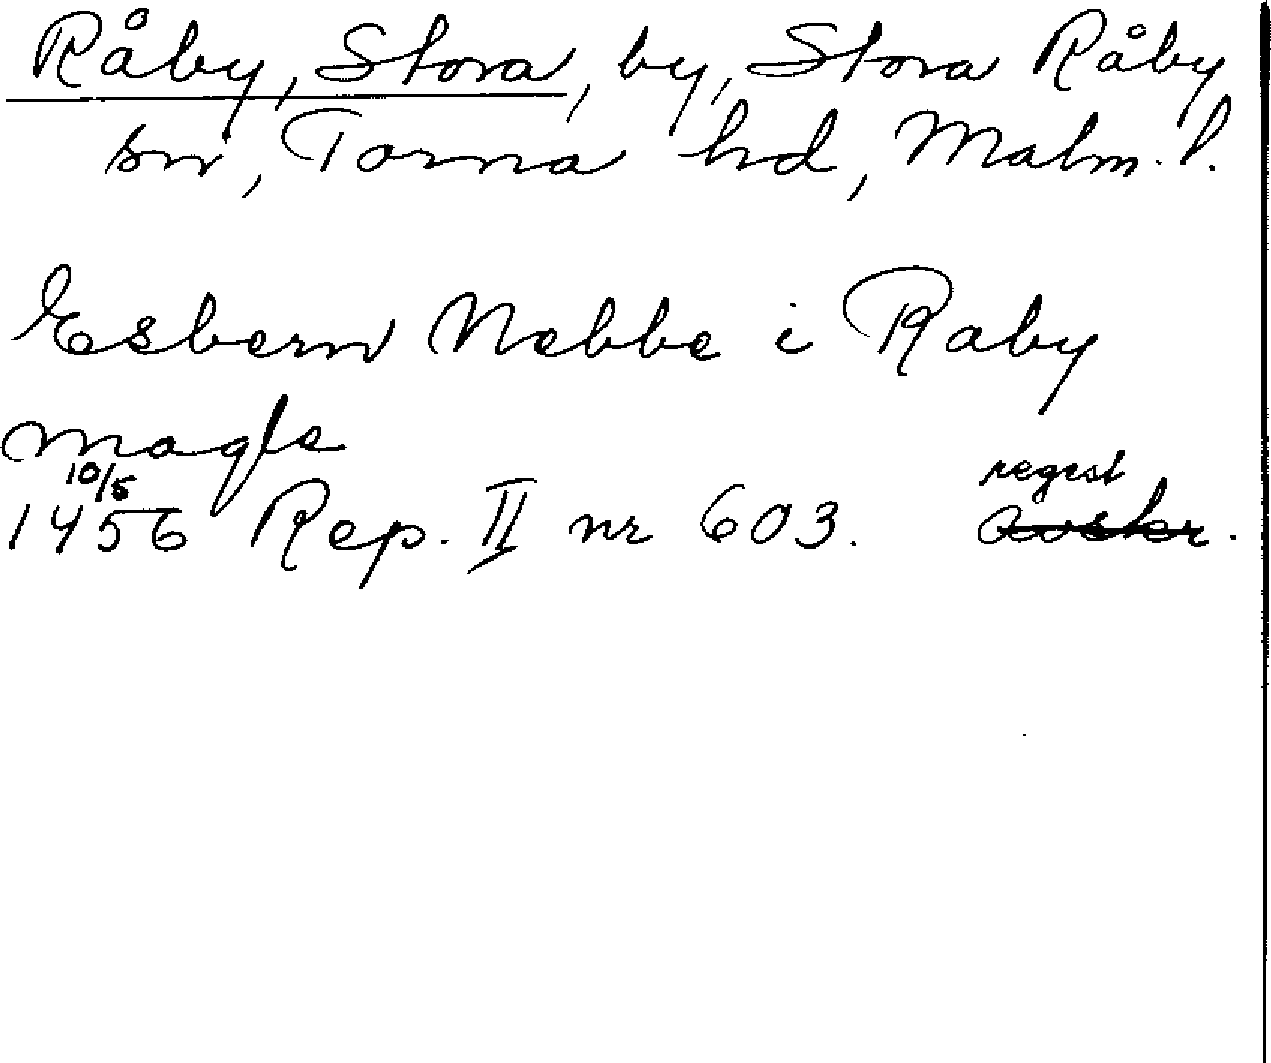 Råby, Stora, by, Stora Råby
sn, Torna hd, Malm. l.
Esbern Nebbe i Raby
magle
10/5
1456 Rep. II nr 603. regest
avskr.